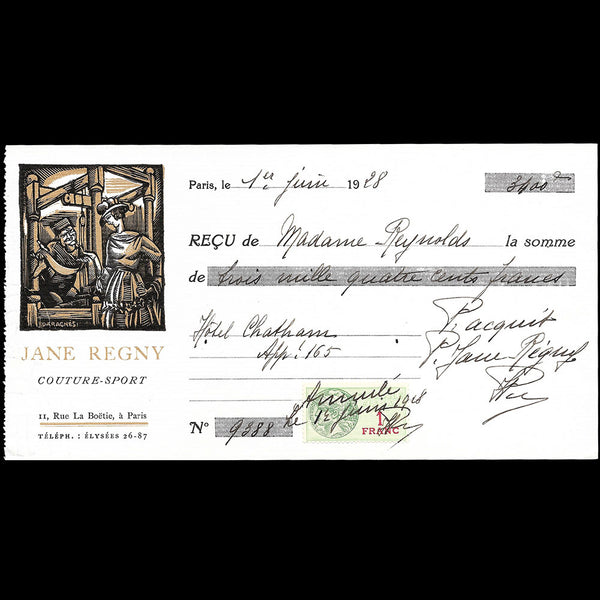 DARAGNÈS
JANE REGNY
COUTURE-SPORT
11, Rue La Boëtie, à Paris
TÉLÉPH. : ÉLYSÉES 26-87
Paris, le 1er juin 1928 3400
REÇU de Madame Reynolds la somme
de trois mille quatre cents francs
Hôtel Chatham
App! 165
P. acquit
P. Jane Régny
Nº 9388
Annulé
le 1er juin 1928
1
FRANC